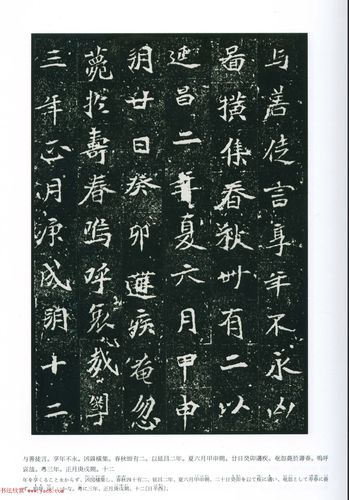 与善徒言享年不永凶
啚横集春秋卌有二以
延昌二年夏六月甲申
朔廿日癸卯遘疾奄忽
薨於壽春嗚呼哀哉粤
三年正月庚戌朔十二
与善徒言。享年不永。凶啚橫集。春秋卌有二。以延昌二年。夏六月甲申朔。廿日癸卯遘疾。奄忽薨於壽春。嗚呼
哀哉。粤三年。正月庚戌朔。十二
书法欣赏